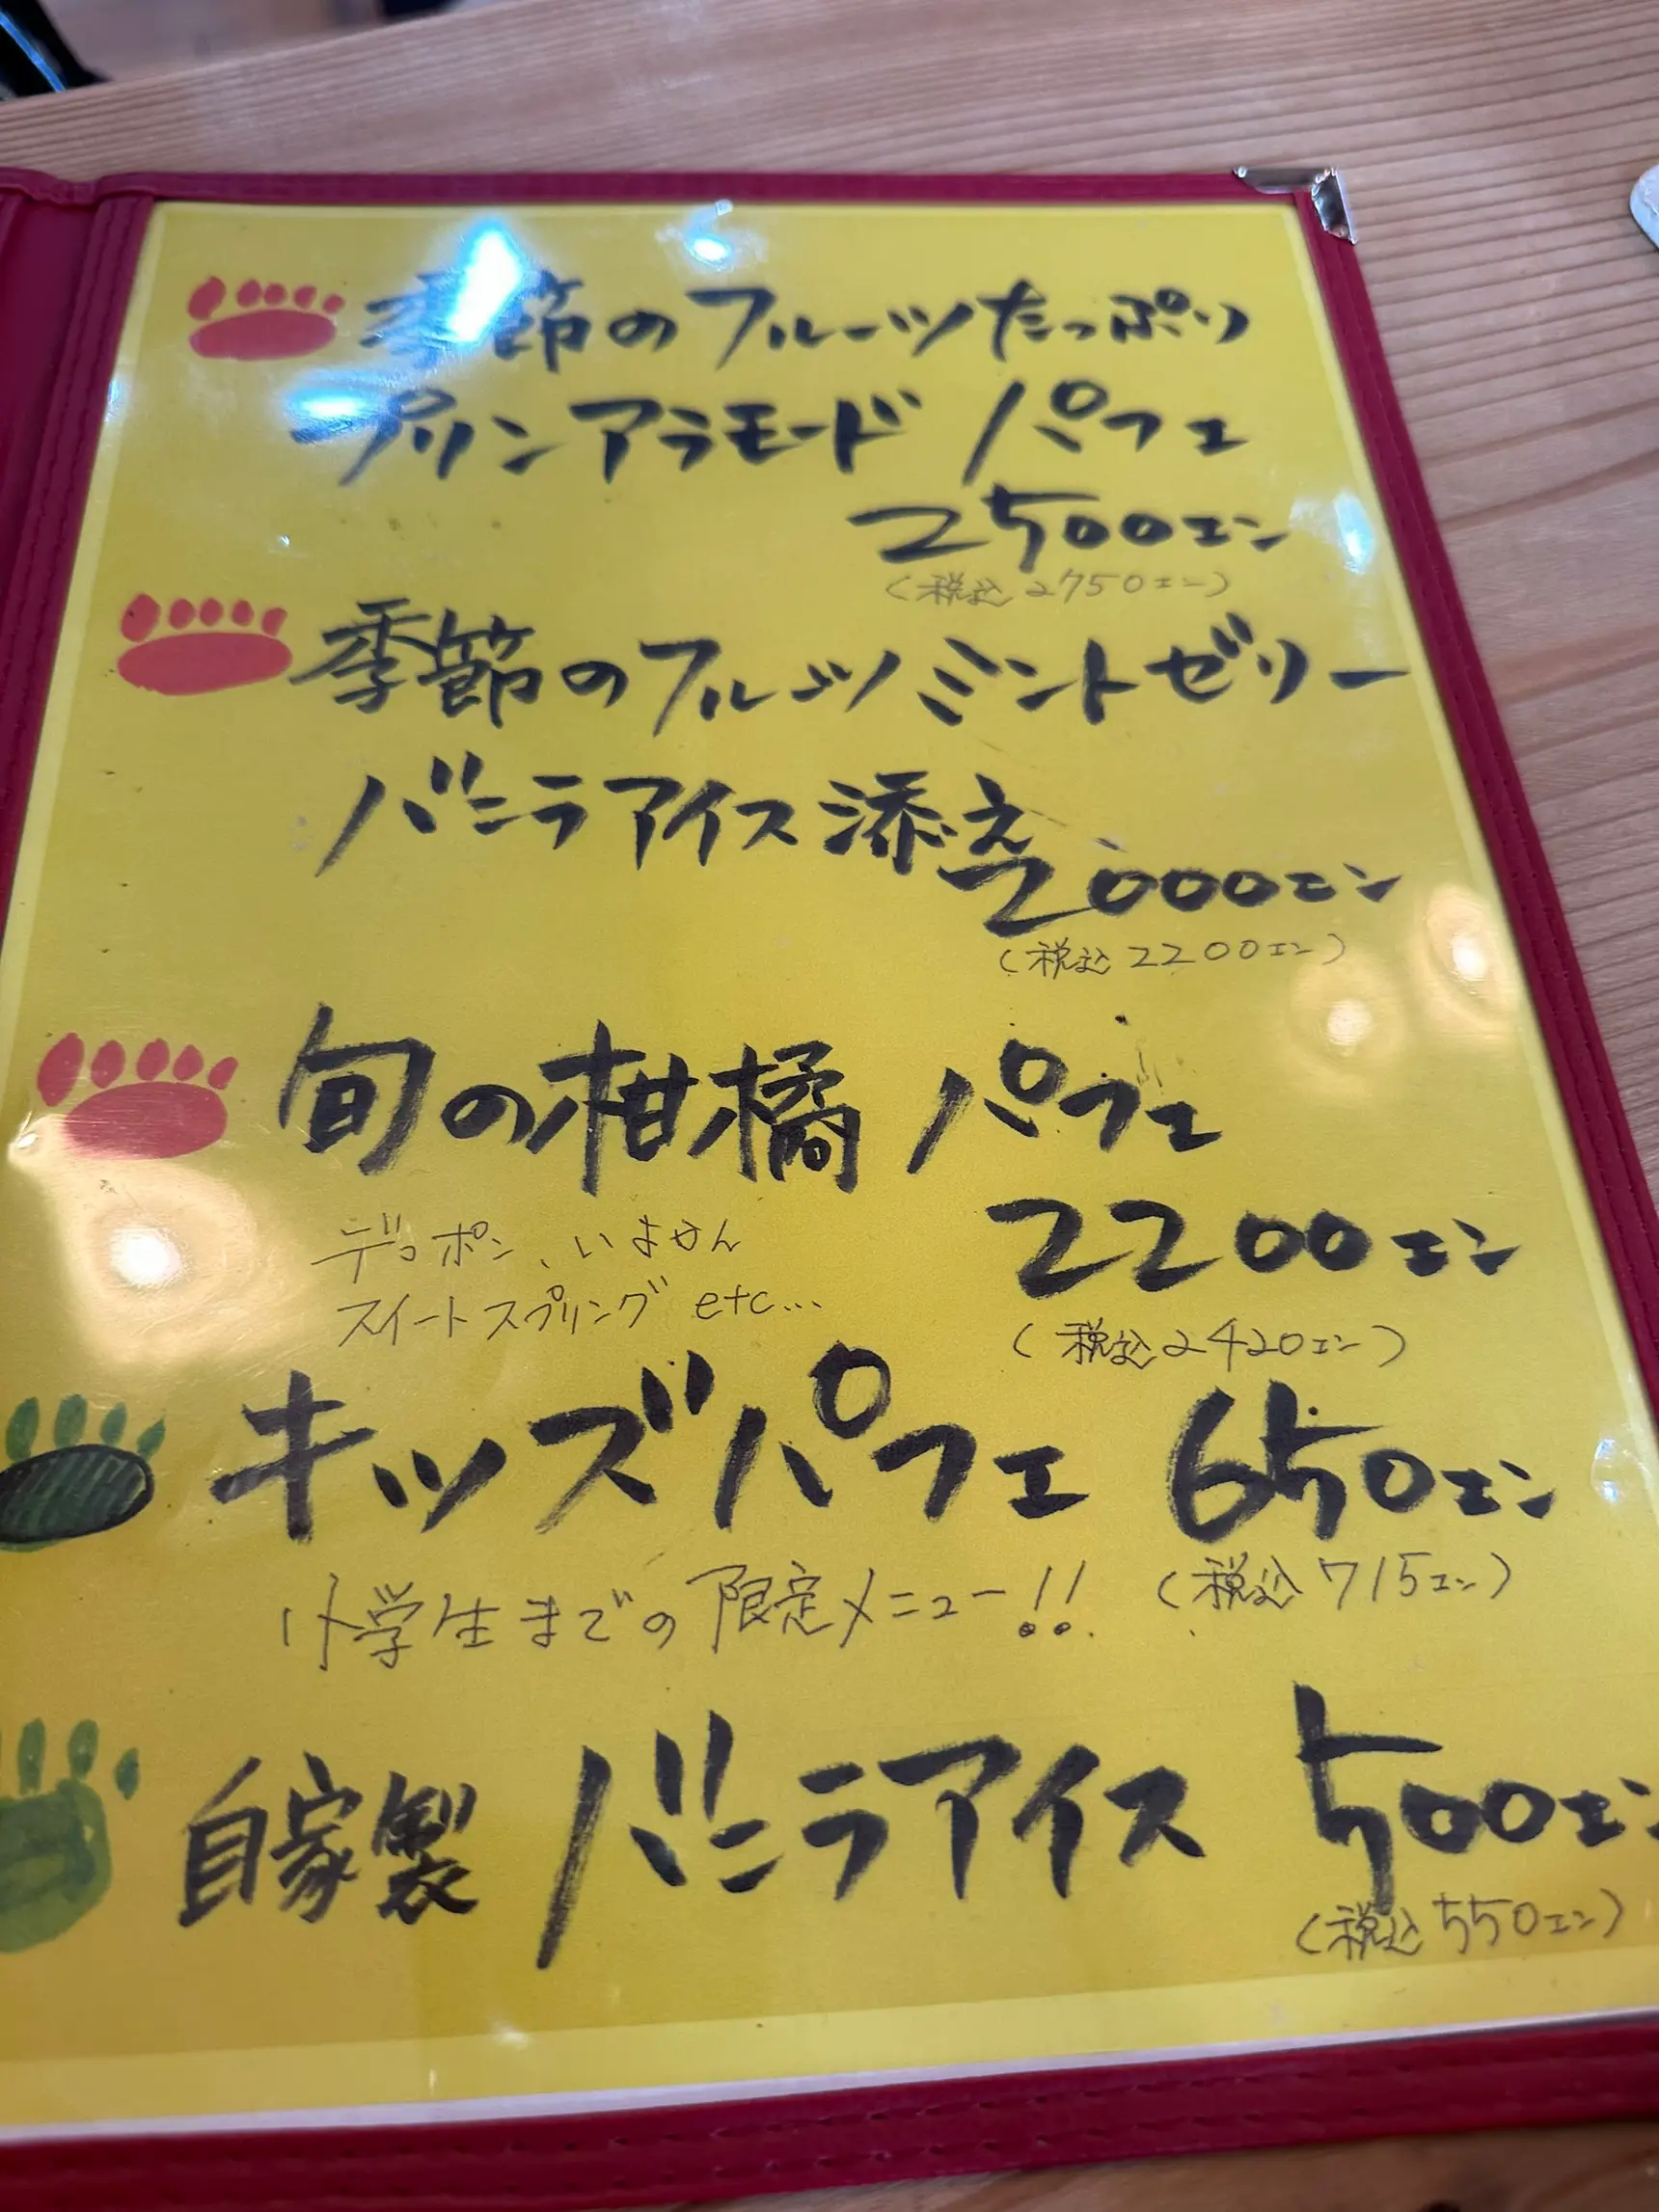 季節のフルーツたっぷり
プリンアラモード パフェ
2500エン
(税込2750エン)
季節のフルーツミントゼリー
バニラアイス添え
2000エン
(税込2200エン)
旬の柑橘 パフェ
デコポン、いません
スイートスプリング etc...
2200エン
(税込2420エン)
キッズパフェ 650エン
小学生までの限定メニュー!! (税込715エン)
自家製 バニラアイス 500エン
(税込550エン)